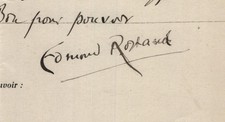 Bon pour pouvoir
Edmond Rostand
uvoir :